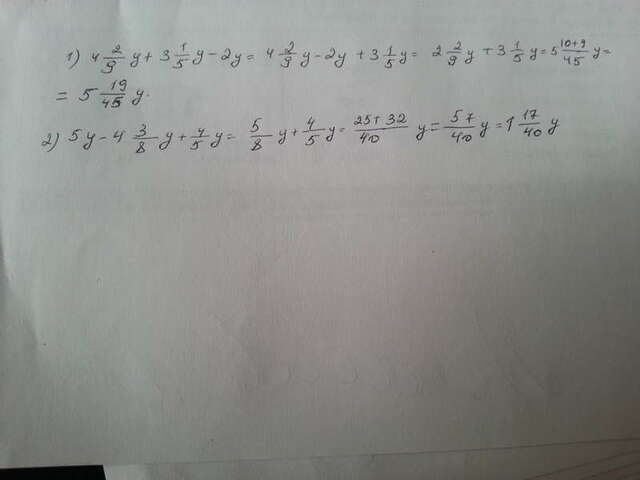 1) 4 2/9 y + 3 1/5 y - 2y = 4 2/9 y - 2y + 3 1/5 y = 2 2/9 y + 3 1/5 y = 5 10+9/45 y =
= 5 19/45 y.
2) 5y - 4 3/8 y + 4/5 y = 5/8 y + 4/5 y = 25+32/40 y = 57/40 y = 1 17/40 y